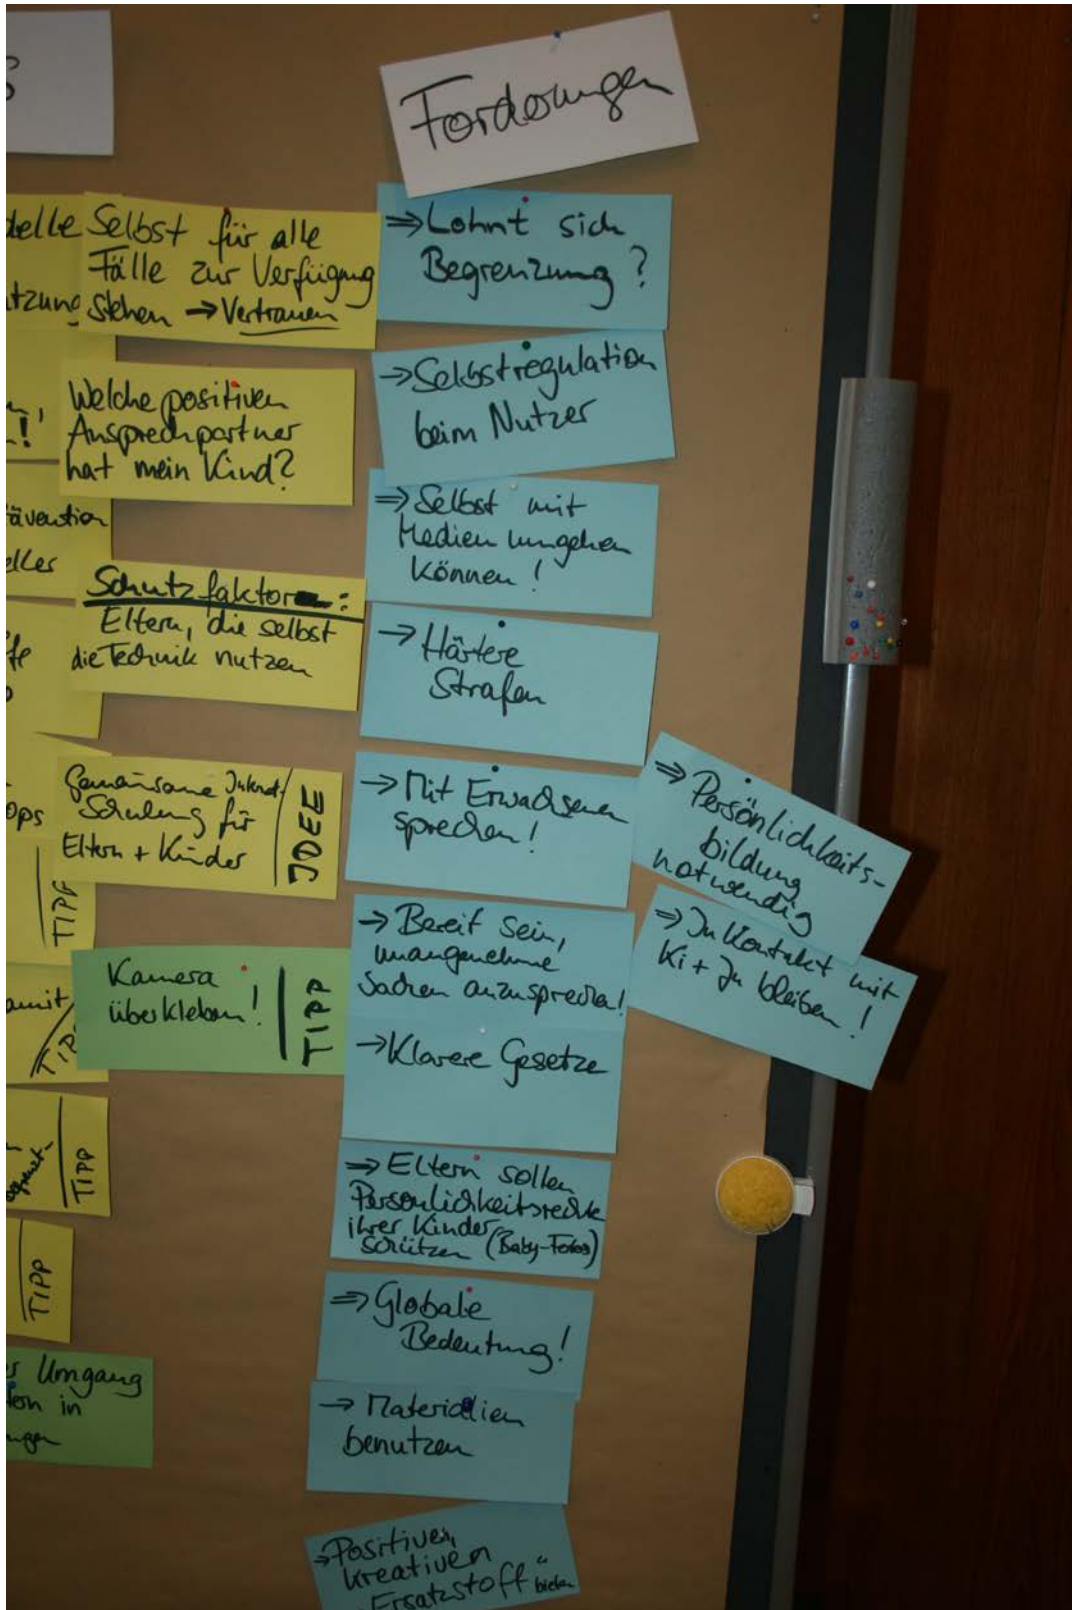 Forderungen
delle
tzung
Selbst für alle
Fälle zur Verfügung
stehen → Vertrauen
!
Welche positiven
Ansprechpartner
hat mein Kind?
ävention
eller
Schutzfaktor:
Eltern, die selbst
die Technik nutzen
fe
ops
TIPP
Gemeinsame Internet-
Schulung für
Eltern + Kinder
IDEE
amit
TIPP
Kamera
überkleben!
TIPP
TIPP
TIPP
r Umgang
in
ngen
⇒ Lohnt sich
Begrenzung?
→ Selbstregulation
beim Nutzer
⇒ Selbst mit
Medien umgehen
können!
→ Härtere
Strafen
→ Mit Erwachsenen
sprechen!
→ Bereit sein,
unangenehme
Sachen anzusprechen!
→ Klarere Gesetze
⇒ Eltern sollen
Persönlichkeitsrechte
ihrer Kinder
schützen (Baby-Fotos)
⇒ Globale
Bedeutung!
→ Materialien
benutzen
→ Positiven,
kreativen
Ersatzstoff" bieten
⇒ Persönlichkeits-
bildung
notwendig
⇒ In Kontakt mit
Ki + Ju bleiben!